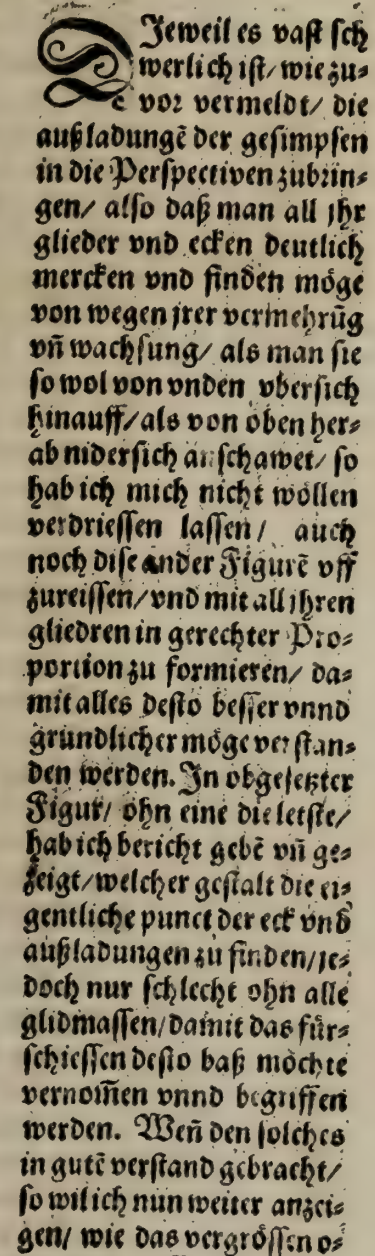 DIeweil es vast sch
werlich ist/ wie zu⸗
vor vermeldt/ die
außladungē der gesimpsen
in die Perspectiven zubrin⸗
gen/ also daß man all jhr
glieder vnd ecken deutlich
mercken vnd finden möge
von wegen jrer vermehrūg
vñ wachsung/ als man sie
so wol von vnden vbersich
hinauff/ als von oben her⸗
ab nidersich anschawet/ so
hab ich mich nicht wöllen
verdriessen lassen/ auch
noch dise ander Figurē vff
zureissen/ vnd mit all jhren
gliedren in gerechter Pro⸗
portion zu formieren/ da⸗
mit alles desto besser vnnd
gründlicher möge verstan⸗
den werden. In obgesetzter
Figur/ ohn eine die letste/
hab ich bericht gebē vñ ge⸗
zeigt/ welcher gestalt die ei⸗
gentliche punct der eck vnd
außladungen zu finden/ je⸗
doch nur schlecht ohn alle
glidmassen/ damit das für⸗
schiessen desto baß möchte
vernom̃en vnnd begriffen
werden. Weñ den solches
in gutē verstand gebracht/
so wil ich nun weiter anzei⸗
gen/ wie das vergrössen o⸗